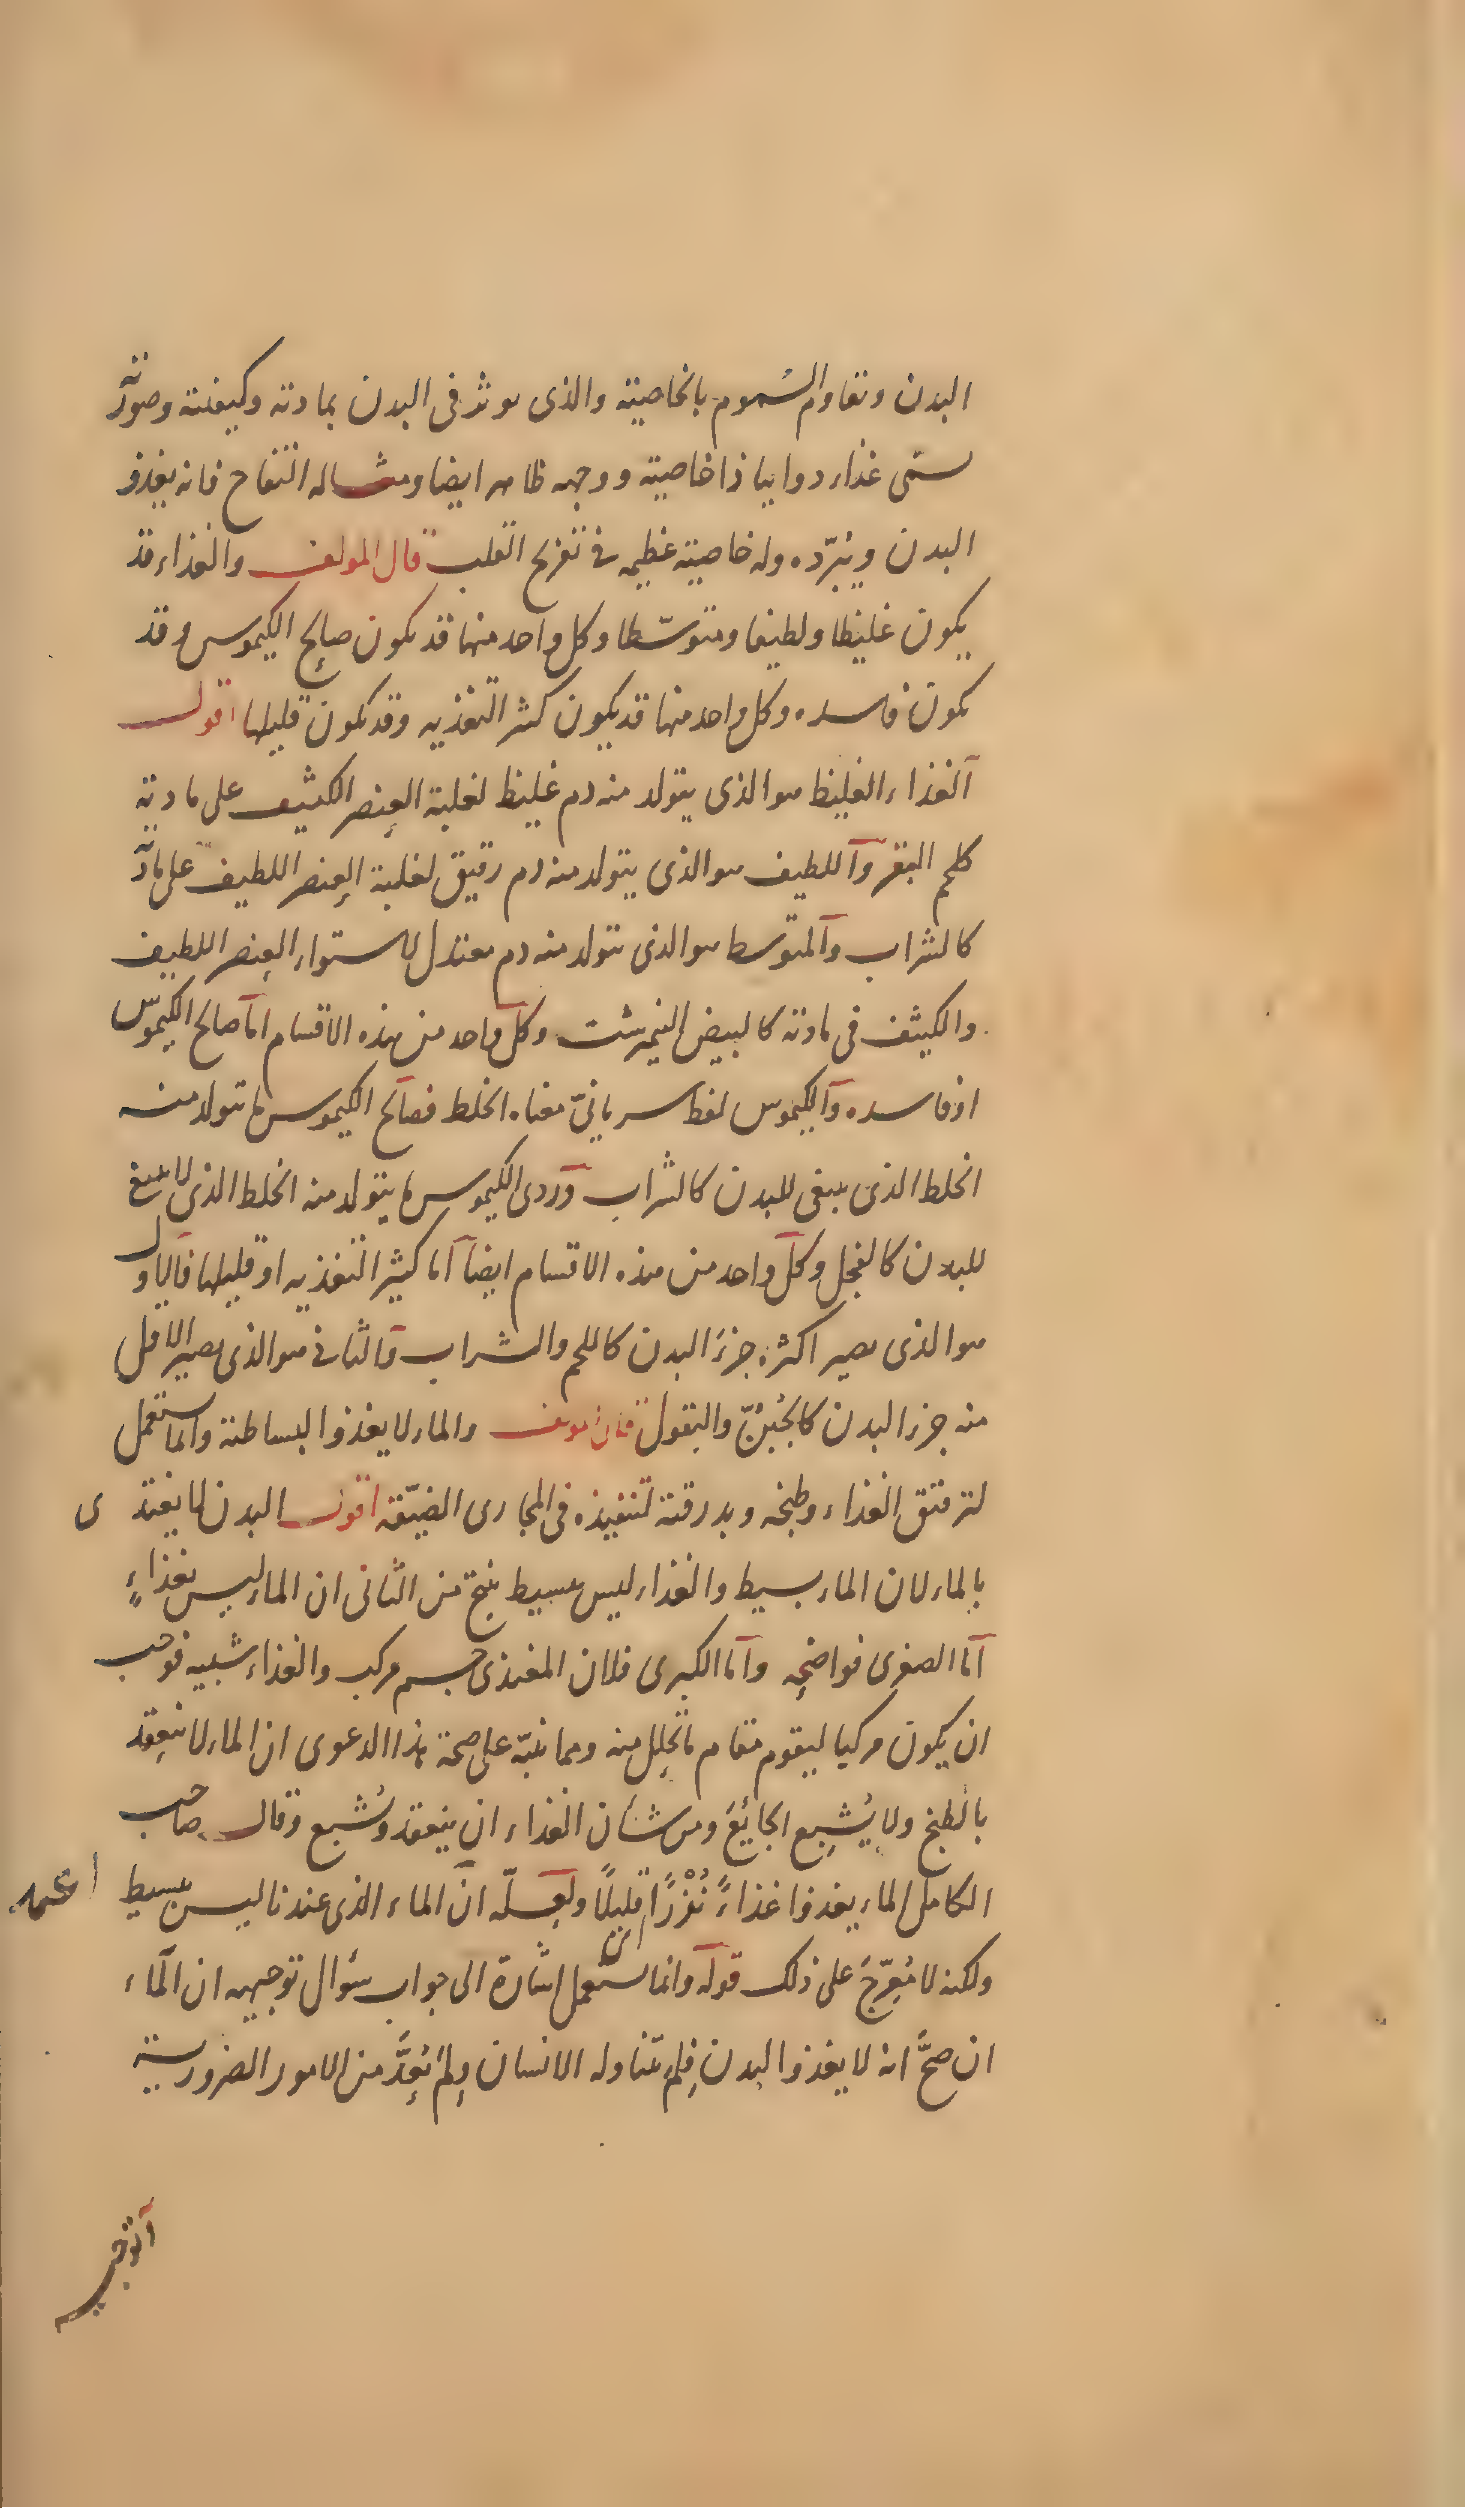 البدن وتقاوم السُموم بالخاصية والذى يوثر فى البدن بمادته وكيفيته وصورته
يسمى غذاء دوائيا ذا خاصية ووجهه ظاهر ايضا ومثاله التفاح فانه يغذو
البدن ويبرّده وله خاصية عظيمه فى تفريح القلب قال المولف والغذاء قد
يكون غليظا ولطيفا ومتوسّطا وكل واحد منها قد يكون صالح الكيموس وقد
يكون فاسده وكل واحد منها قد يكون كثير التغذيه وقد يكون قليلها اقول
الغذاء الغليظ هو الذى يتولد منه دم غليظ لغلبة العنصر الكثيف على مادته
كلحم البقر واللطيف هو الذى يتولد منه دم رقيق لغلبة العنصر اللطيف على مادته
كالشراب والمتوسط هو الذى يتولد منه دم معتدل لاستواء العنصر اللطيف
والكثيف فى مادته كالبيض النيمرشت وكل واحد من هذه الاقسام اما صالح الكيموس
او فاسده والكيموس لفظ سريانىّ معناه الخلط فصالح الكيموس ما يتولد منه
الخلط الذى ينبغى للبدن كالشراب وردى الكيموس ما يتولد منه الخلط الذى لا ينبغى
للبدن كالفجل وكل واحد من هذه الاقسام ايضا اما كثير التغذيه او قليلها فالاول
هو الذى يصير اكثره جزءَ البدن كاللحم والشراب والثانى هو الذى يصير الاقل
منه جزء البدن كالجُبُنّ والبقول قال المولف والماء لا يغذو البساطته وانما يستعمل
لترقيق الغذاء وطبخه وبدرقته لتنفيذه فى المجارى الضيّقة اقول البدن لا يغتذى
بالماء لان الماء بسيط والغذاء ليس ببسيط ينتج من الثانى ان الماء ليس بغذاءٍ
اما الصغرى فواضحِه واما الكبرى فلان المغتذى جسم مركب والغذاء شبيه فوجب
ان يكون مركبا ليقوم مقام ما تحلل منه ومما ينبّه على صحة هذا الدعوى ان الماء لا ينعِقد
بالطبخ ولا يُشِبع الجائعَ ومن شأن الغذاء ان ينعقد ويُشبع وقال صاحب
الكامل الماء يغذوا غذاءً نُزْرًا قليلًا ولعِلّه انّ الماء الذى عندنا ليس ببسيط
ولكنه لا يُعِرّجَ على ذلك قوله وانما يستعمل اشارة الى جواب سؤال توجيهه ان الماء
ان صحَّ انه لا يغذوا البدن فِلمَ يتناوله الانسان ولِمَ يُعِدَّ من الامور الضرورية